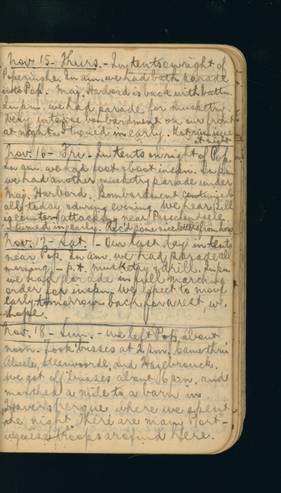 Nov. 15 - Thurs. - In tents on right of
Poperinghe. In a.m. we had bath parade
into Pop. Maj. Harbord is back with battn.
In p.m. we had parade for musketry.
Very intense bombardment on our front
at night. I turned in early.
at night
Nov. 16 - Fri - In tents on right of Pop.
In a.m. we had foot
we had another musketry parade under
Maj. Harbord. Bombardment continued
all today & during evening we
counter attacking near Passchendaele.
I turned in early. Rec'd some nice letters from home
Nov. 17 - Sat. - Our last day in tents
near Pop. In a.m. we had parade all
morning - p.t. musketry & drill. In p.m.
we had parade in full marching
order for inspn. We expect to move
early tomorrow back for a rest we
hope.
Nov. 18 - Sun. - We left Pop. about
noon. Took busses at 2 p.m. Came thru
Abeele, Steenvoorde, and Hazebrouck.
We got off busses about 6 p.m. and
marched a mile to a barn in
where we spent
the night. There are many Port-
uguese troops around here.